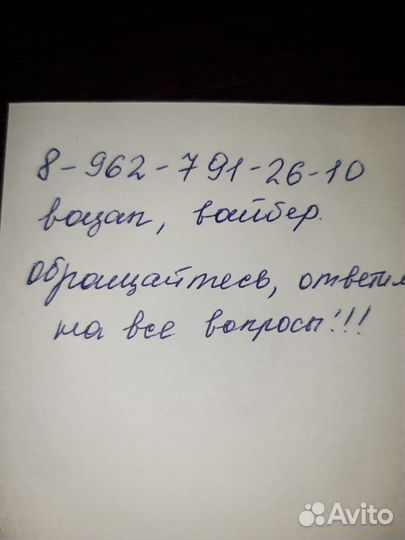 8-962-791-26-10
вацап, вайбер.
обращайтесь, ответим
на все вопросы!!!
Avito